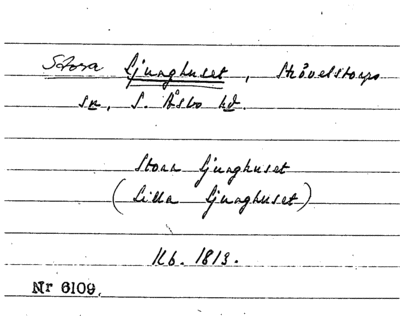 Stora Ljunghuset, Strövelstorps
sn, S. Åsbo hd.
Stora Ljunghuset
(Lilla Ljunghuset)
Kb. 1813.
Nr 6109.